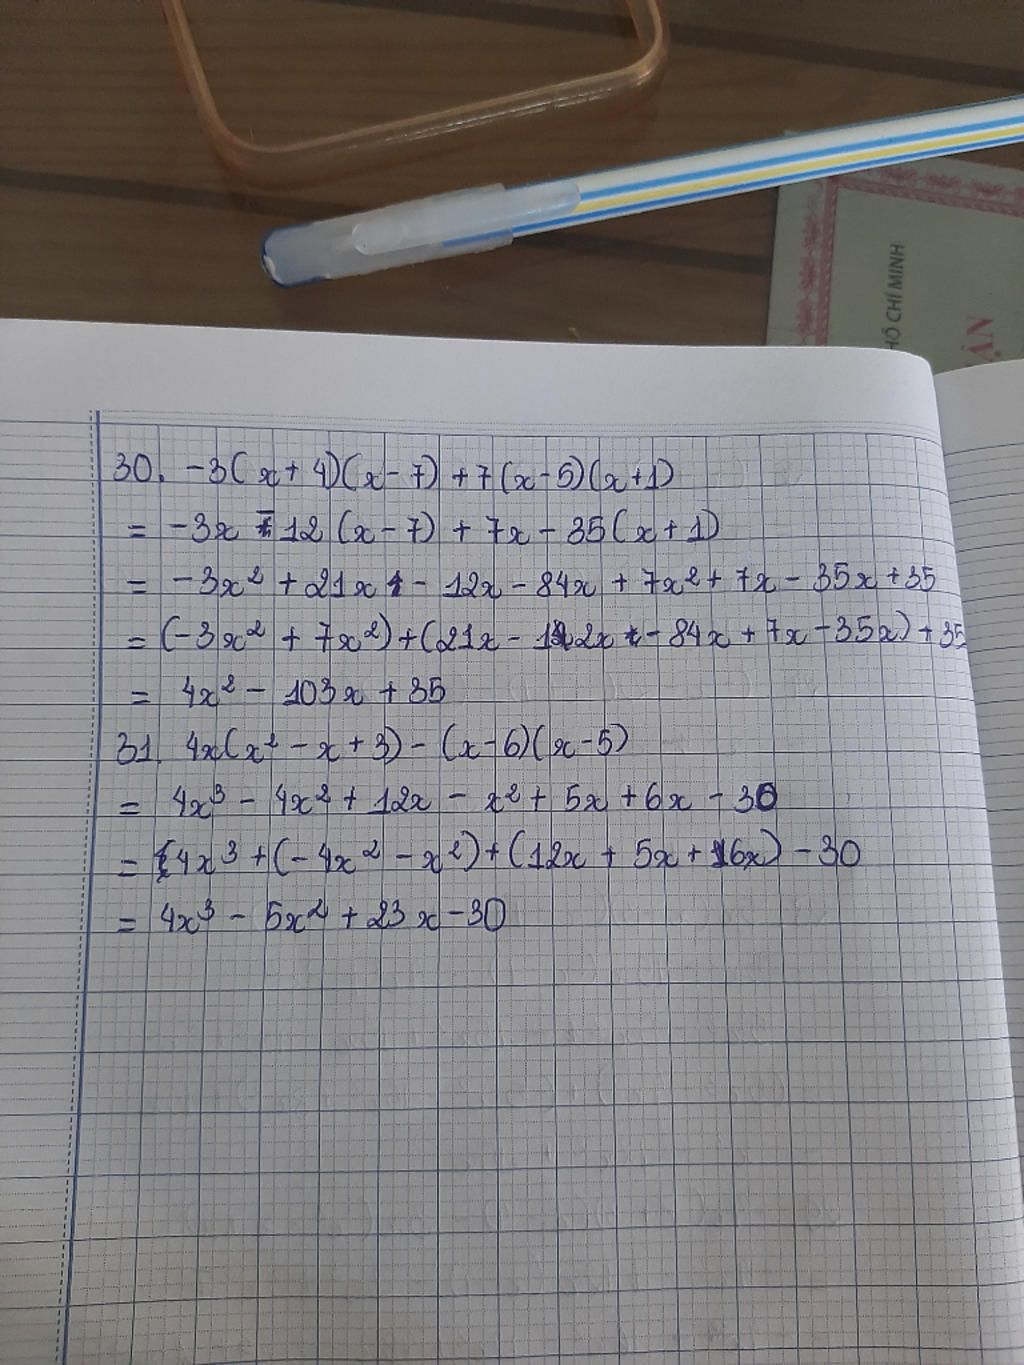 HỒ CHÍ MINH
ẬN
30. -3(x+4)(x-7)+7(x-5)(x+1)
= -3x - 12(x-7) + 7x - 35(x+1)
= -3x² + 21x - 12x - 84x + 7x² + 7x - 35x + 35
= (-3x² + 7x²) + (21x - 12x - 84x + 7x - 35x) + 35
= 4x² - 103x + 35
31. 4x(x² - x + 3) - (x-6)(x-5)
= 4x³ - 4x² + 12x - x² + 5x + 6x - 30
= 4x³ + (-4x² - x²) + (12x + 5x + 6x) - 30
= 4x³ - 5x² + 23x - 30